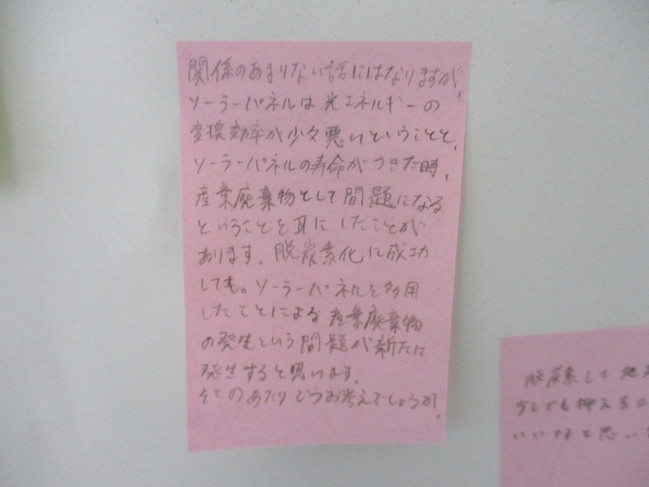 関係のあまりない話にはなりますが、
ソーラーパネルは光エネルギーの
変換効率が少々悪いということと、
ソーラーパネルの寿命がつきた時、
産業廃棄物として問題になる
ということを耳にしたことが
あります。脱炭素化に成功
しても。ソーラーパネルを多用
したことによる産業廃棄物
の発生という問題が新たに
発生すると思います。
そのあたりどうお考えでしょうか。
脱炭素して地
少しでも抑えるこ
いいなと思い